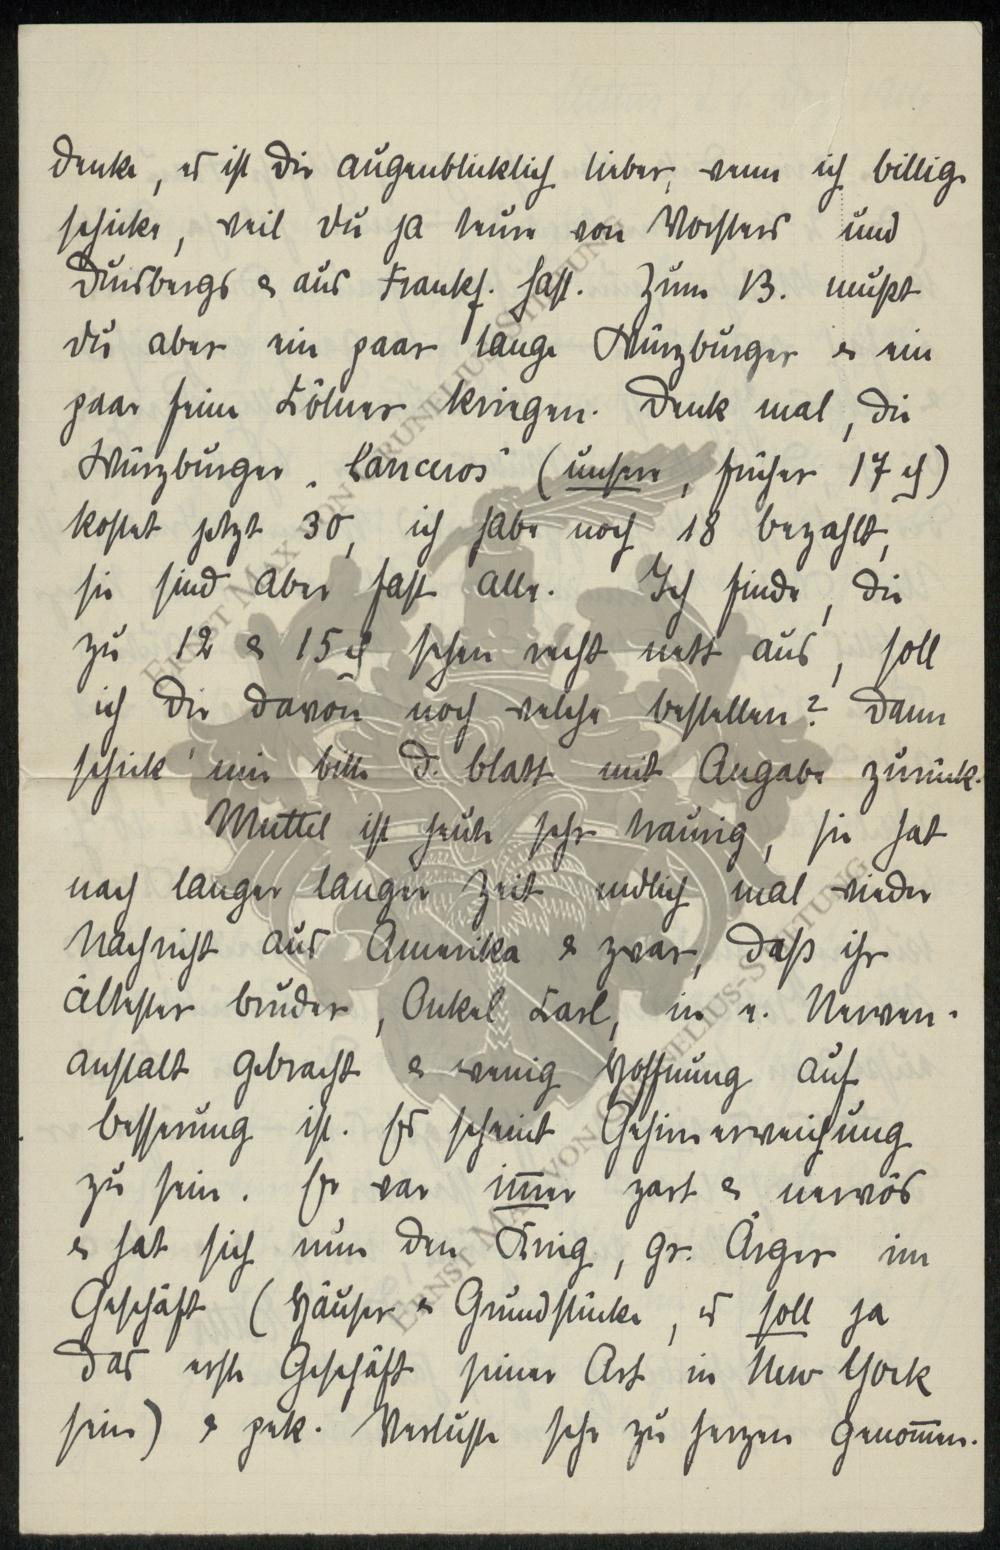 denke, es ist Dir augenblicklich lieber, wenn ich billige
schicke, weil Du ja teure von Vorsters und
Duisbergs & aus Frankf. hast. Zum 13. mußt
du aber ein paar lange Würzburger & ein
paar feine Kölner kriegen. Denk mal, die
Würzburger „Canceros" (unsere, früher 17 ch)
kostet jetzt 30, ich habe noch 18 bezahlt,
sie sind aber fast alle. Ich finde, die
zu 12 & 15 ch sehen recht nett aus, soll
ich Dir davon noch welche bestellen? Dann
schick' mir bitte d. Blatt mit Angabe zurück.
Muttel ist heute sehr traurig, sie hat
nach langer langer Zeit endlich mal wieder
Nachricht aus Amerika & zwar, daß ihr
ältester Bruder, Onkel Karl, in e. Nerven-
anstalt gebracht & wenig Hoffnung auf
Besserung ist. Es scheint Gehirnerweichung
zu sein. Er war immer zart & nervös
& hat sich nun den Krieg, gr. Ärger im
Geschäft (Häuser & Grundstücke, es soll ja
das erste Geschäft seiner Art in New York
sein) & pek. Verluste sehr zu Herzen genommen.
ERNST MAX VON GRUNELIUS-STIFTUNG
ERNST MAX VON GRUNELIUS-STIFTUNG